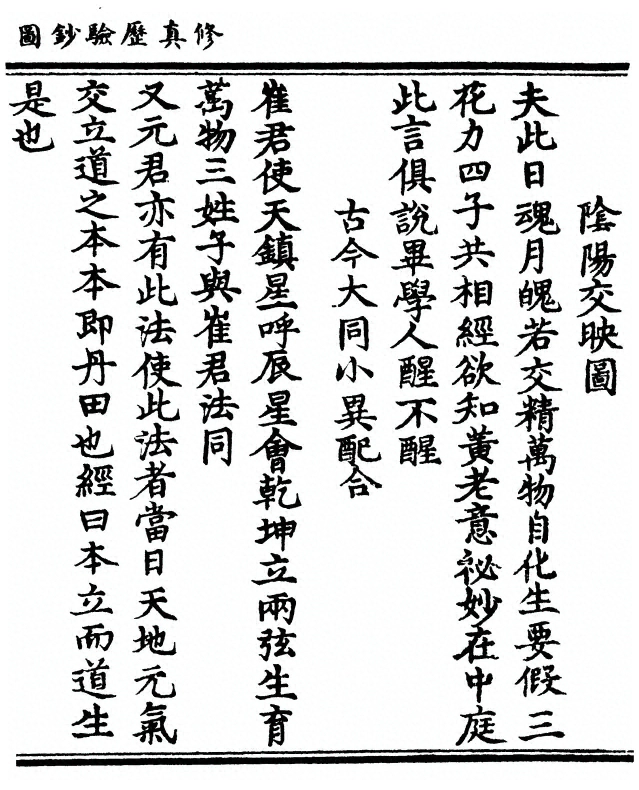 修真歷驗鈔圖
陰陽交映圖
夫此日魂月魄若交精萬物自化生要假三
花力四子共相經欲知黃老意祕妙在中庭
此言俱說畢學人醒不醒
古今大同小異配合
崔君使天鎮星一呼辰星會乾坤立兩弦生育
萬物三姓子與崔君法同
又元君亦有此法使此法者當日天地元氣
交立道之本本即丹田也經曰本立而道生
是也